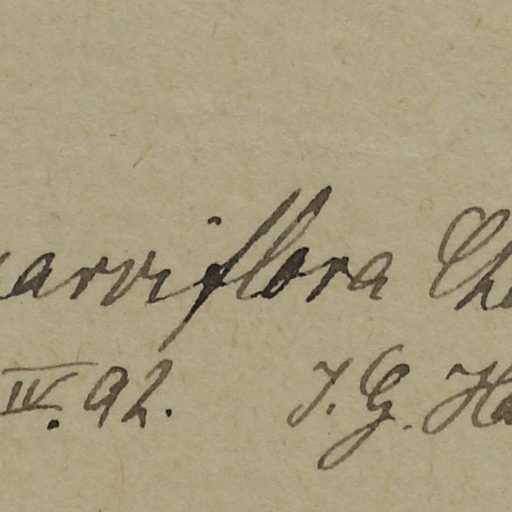 parviflora Ch
IV. 92. J. G. Ha